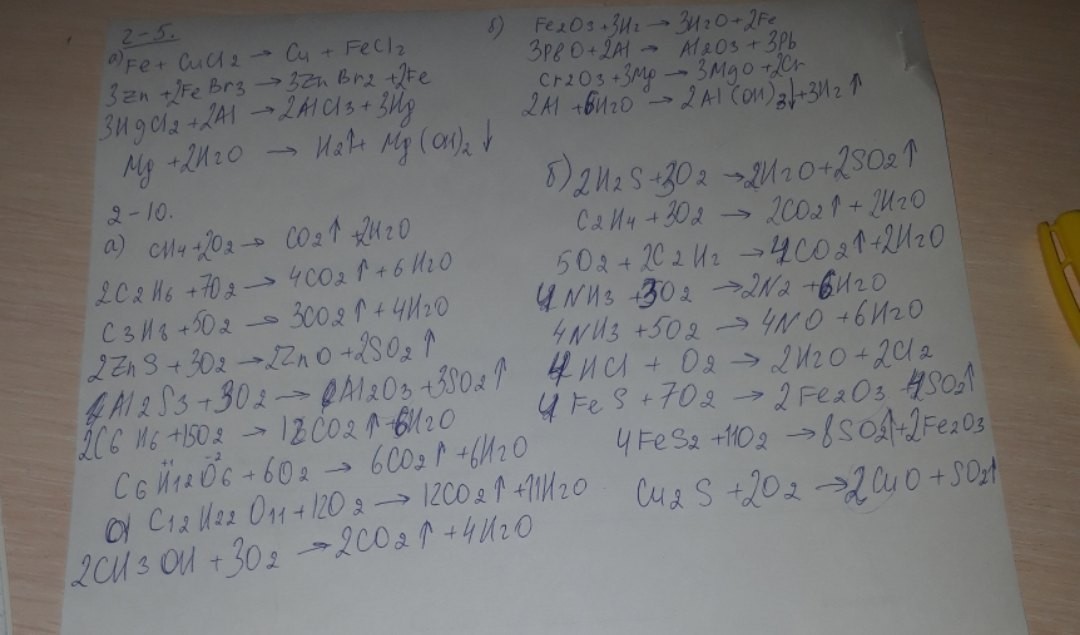 2-5.
а) Fe + CuCl2 → Cu + FeCl2
3Zn + 2FeBr3 → 3ZnBr2 + 2Fe
3HgCl2 + 2Al → 2AlCl3 + 3Hg
Mg + 2H2O → H2↑ + Mg(OH)2↓
б) Fe2O3 + 3H2 → 3H2O + 2Fe
3PbO + 2Al → Al2O3 + 3Pb
Cr2O3 + 3Mg → 3MgO + 2Cr
2Al + 6H2O → 2Al(OH)3↓ + 3H2↑
2-10.
а) CH4 + 2O2 → CO2↑ + 2H2O
2C2H6 + 7O2 → 4CO2↑ + 6H2O
C3H8 + 5O2 → 3CO2↑ + 4H2O
2ZnS + 3O2 → 2ZnO + 2SO2↑
Al2S3 + 3O2 → Al2O3 + 3SO2↑
2C6H6 + 15O2 → 12CO2↑ + 6H2O
C6H12O6 + 6O2 → 6CO2↑ + 6H2O
C12H22O11 + 12O2 → 12CO2↑ + 11H2O
2CH3OH + 3O2 → 2CO2↑ + 4H2O
б) 2H2S + 3O2 → 2H2O + 2SO2↑
C2H4 + 3O2 → 2CO2↑ + 2H2O
5O2 + 2C2H2 → 4CO2↑ + 2H2O
4NH3 + 3O2 → 2N2 + 6H2O
4NH3 + 5O2 → 4NO + 6H2O
4HCl + O2 → 2H2O + 2Cl2
4FeS + 7O2 → 2Fe2O3 + 4SO2↑
4FeS2 + 11O2 → 8SO2↑ + 2Fe2O3
Cu2S + 2O2 → 2CuO + SO2↑